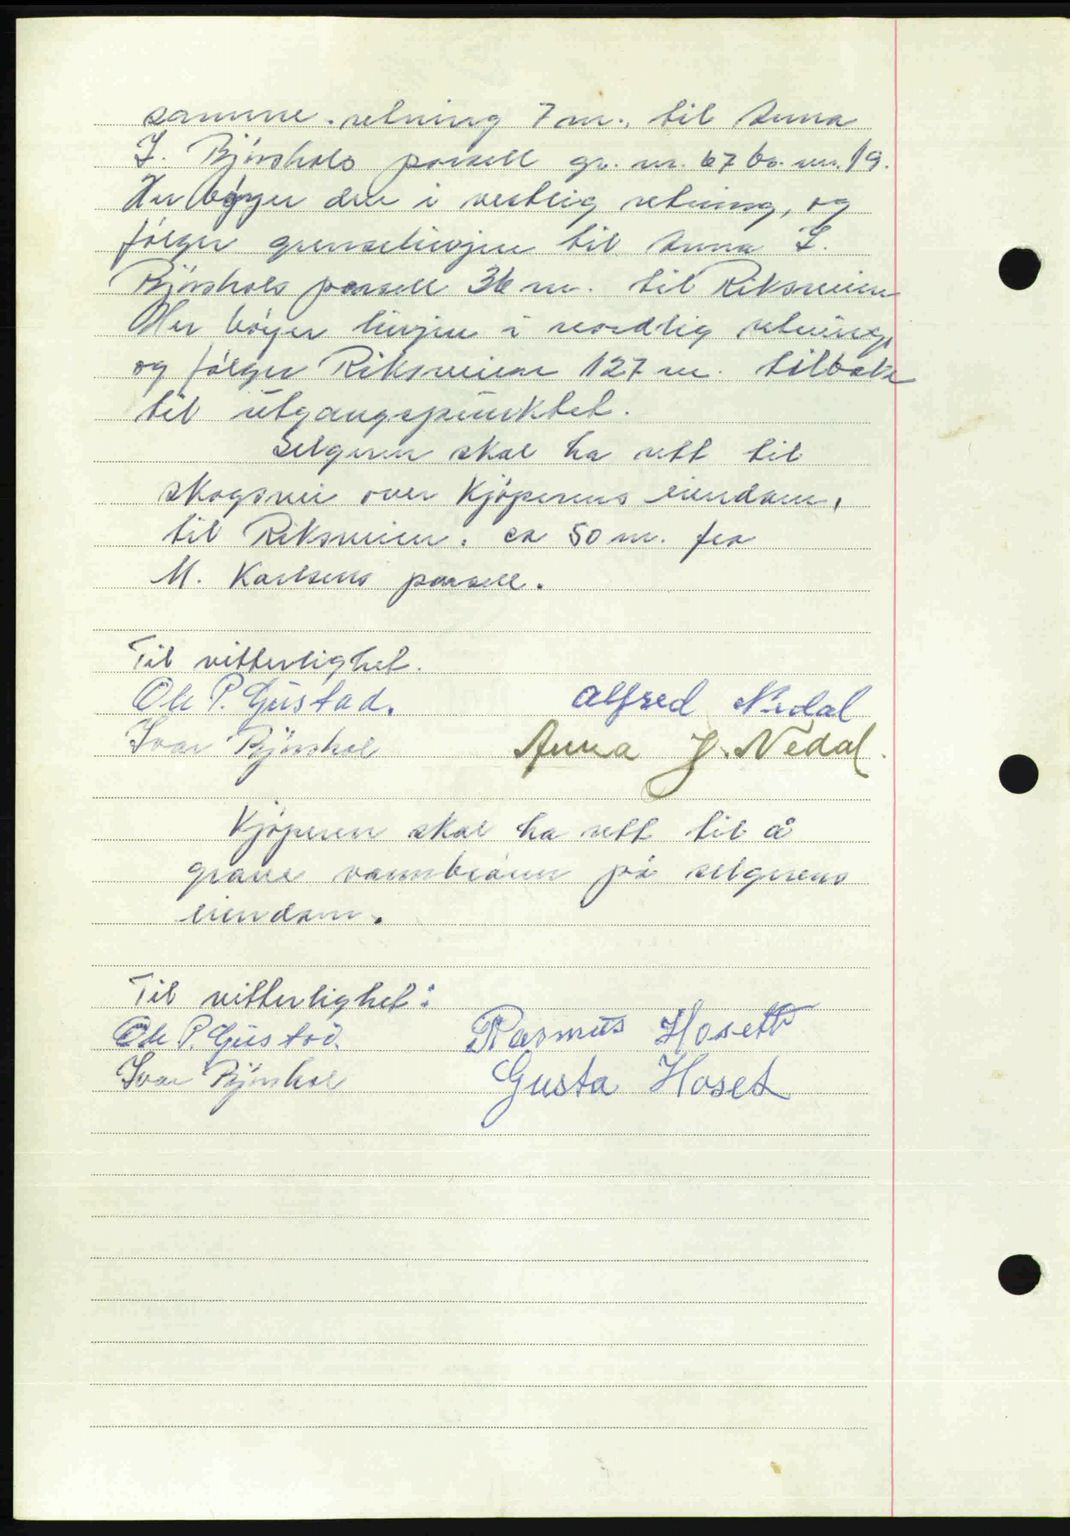 samme retning 7 m. til Anna
I. Bjørshols parsell gr. nr. 67 br. nr. 19.
Her bøyer den i vestlig retning, og
følger grenselinjen til Anna I.
Bjørshols parsell 36 m. til Riksveien
Her bøyer linjen i nordlig retning,
og følger Riksveien 127 m. tilbake
til utgangspunktet.
Selgeren skal ha rett til
skogsvei over Kjøperens eiendom,
til Riksveien. ca 50 m. fra
M. Karlsens parsell.
Til vitterlighet.
Ole P. Gustad. Alfred Nedal
Ivar Bjørshol Anna J. Nedal.
Kjøperen skal ha rett til å
grave vannbrønn på selgerens
eiendom.
Til vitterlighet:
Ole P. Gustad. Rasmus Hoseth
Ivar Bjørshol Gusta Hoset